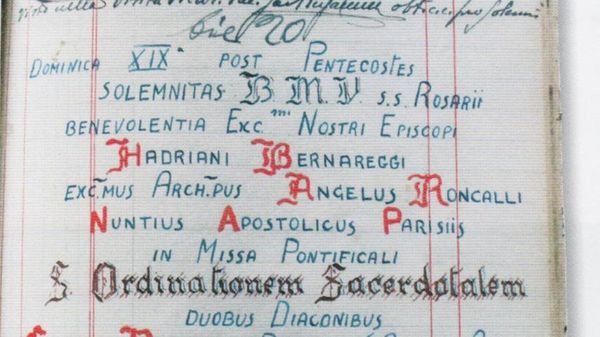 die 20
DOMINICA XIXª POST PENTECOSTES
SOLEMNITAS B. M. V. S.S. ROSARII
BENEVOLENTIA EXC.mi NOSTRI EPISCOPI
HADRIANI BERNAREGGI
EXC.MUS ARCH.PUS ANGELUS RONCALLI
NUNTIUS APOSTOLICUS PARISIIS
IN MISSA PONTIFICALI
S. Ordinationem Sacerdotalem
DUOBUS DIACONIBUS